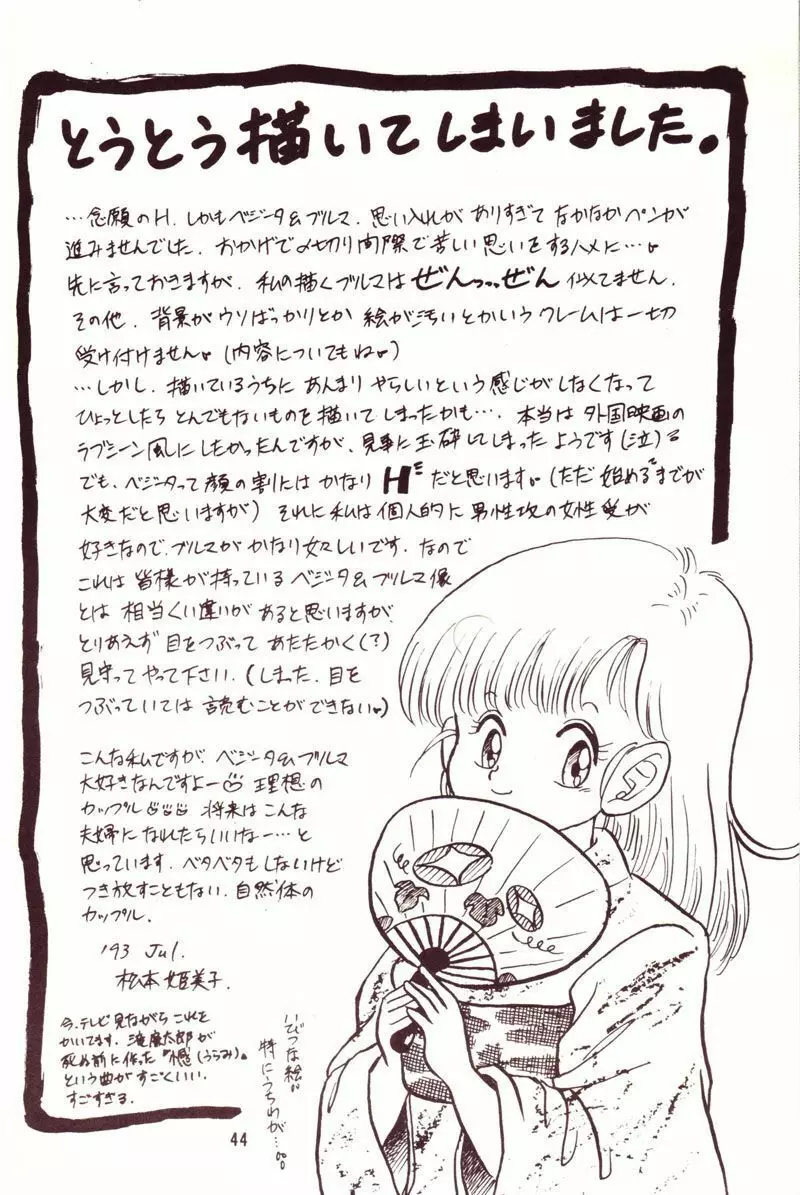 とうとう描いてしまいました。
…念願のH.しかもベジータ&ブルマ.思い入れがありすぎてなかなかペンが
進みませんでした.おかげで〆切り間際で苦しい思いをするハメに…。
先に言っておきますが.私の描くブルマはぜんっっぜん似てません.
その他.背景がウソばっかりとか絵が汚いとかいうクレームは一切
受け付けません。(内容についてもね。)
…しかし.描いているうちにあんまりやらしいという感じがしなくなって
ひょっとしたらとんでもないものを描いてしまったかも….本当は外国映画の
ラブシーン風にしたかったんですが、見事に玉砕してしまったようです(泣)
でも、ベジータって顔の割にはかなりHだと思います。(ただ始めるまでが
大変だと思いますが)それに私は個人的に男性攻の女性受が
好きなので.ブルマがかなり女々しいです.なので
これは皆様が持っているベジータ&ブルマ像
とは相当くい違いがあると思いますが
とりあえず目をつぶってあたたかく(?)
見守ってやって下さい.(しまった.目を
つぶっていては読むことができない。)
こんな私ですが、ベジータ&ブルマ
大好きなんですよー 理想の
カップル 将来はこんな
夫婦になれたらいいなー…と
思っています.ベタベタもしないけど
つき放すこともない.自然体の
カップル.
'93 Jul.
松本姫美子.
今、テレビ見ながらこれを
かいてます.滝廉太郎が
死ぬ前に作った『憾(うらみ)』
という曲がすごくいい.
すごすぎる.
いびつな絵…
特にうちわが…。
44